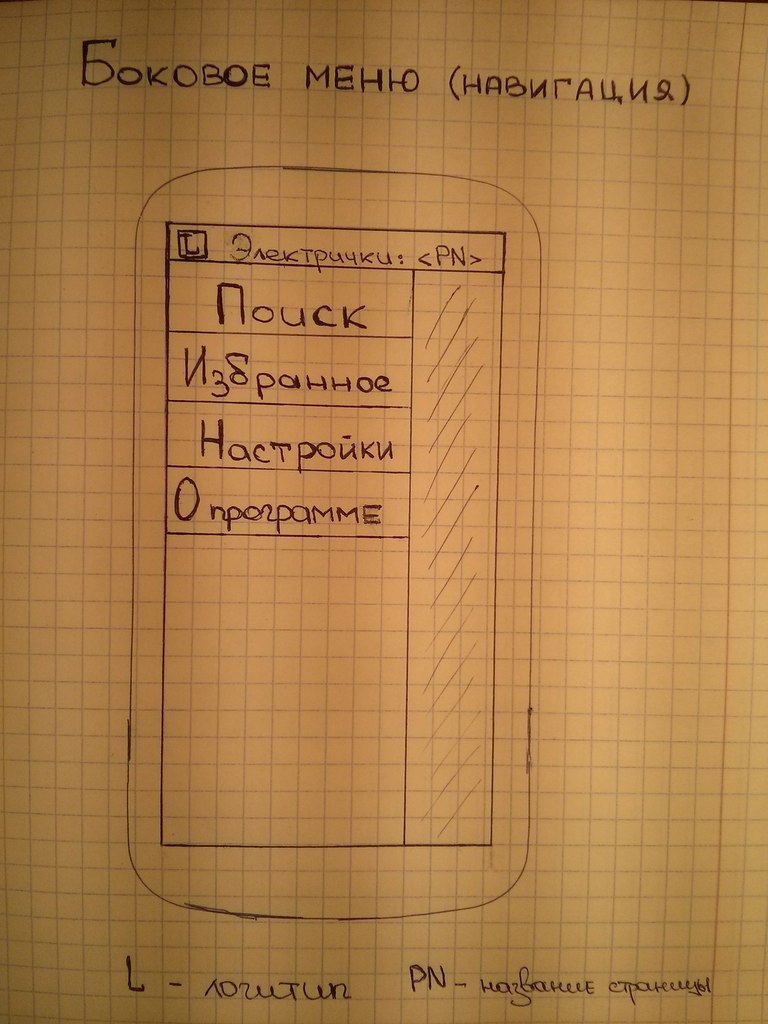 Боковое меню (навигация)
L Электрички: <PN>
Поиск
Избранное
Настройки
О программе
L - логитип PN - название страницы